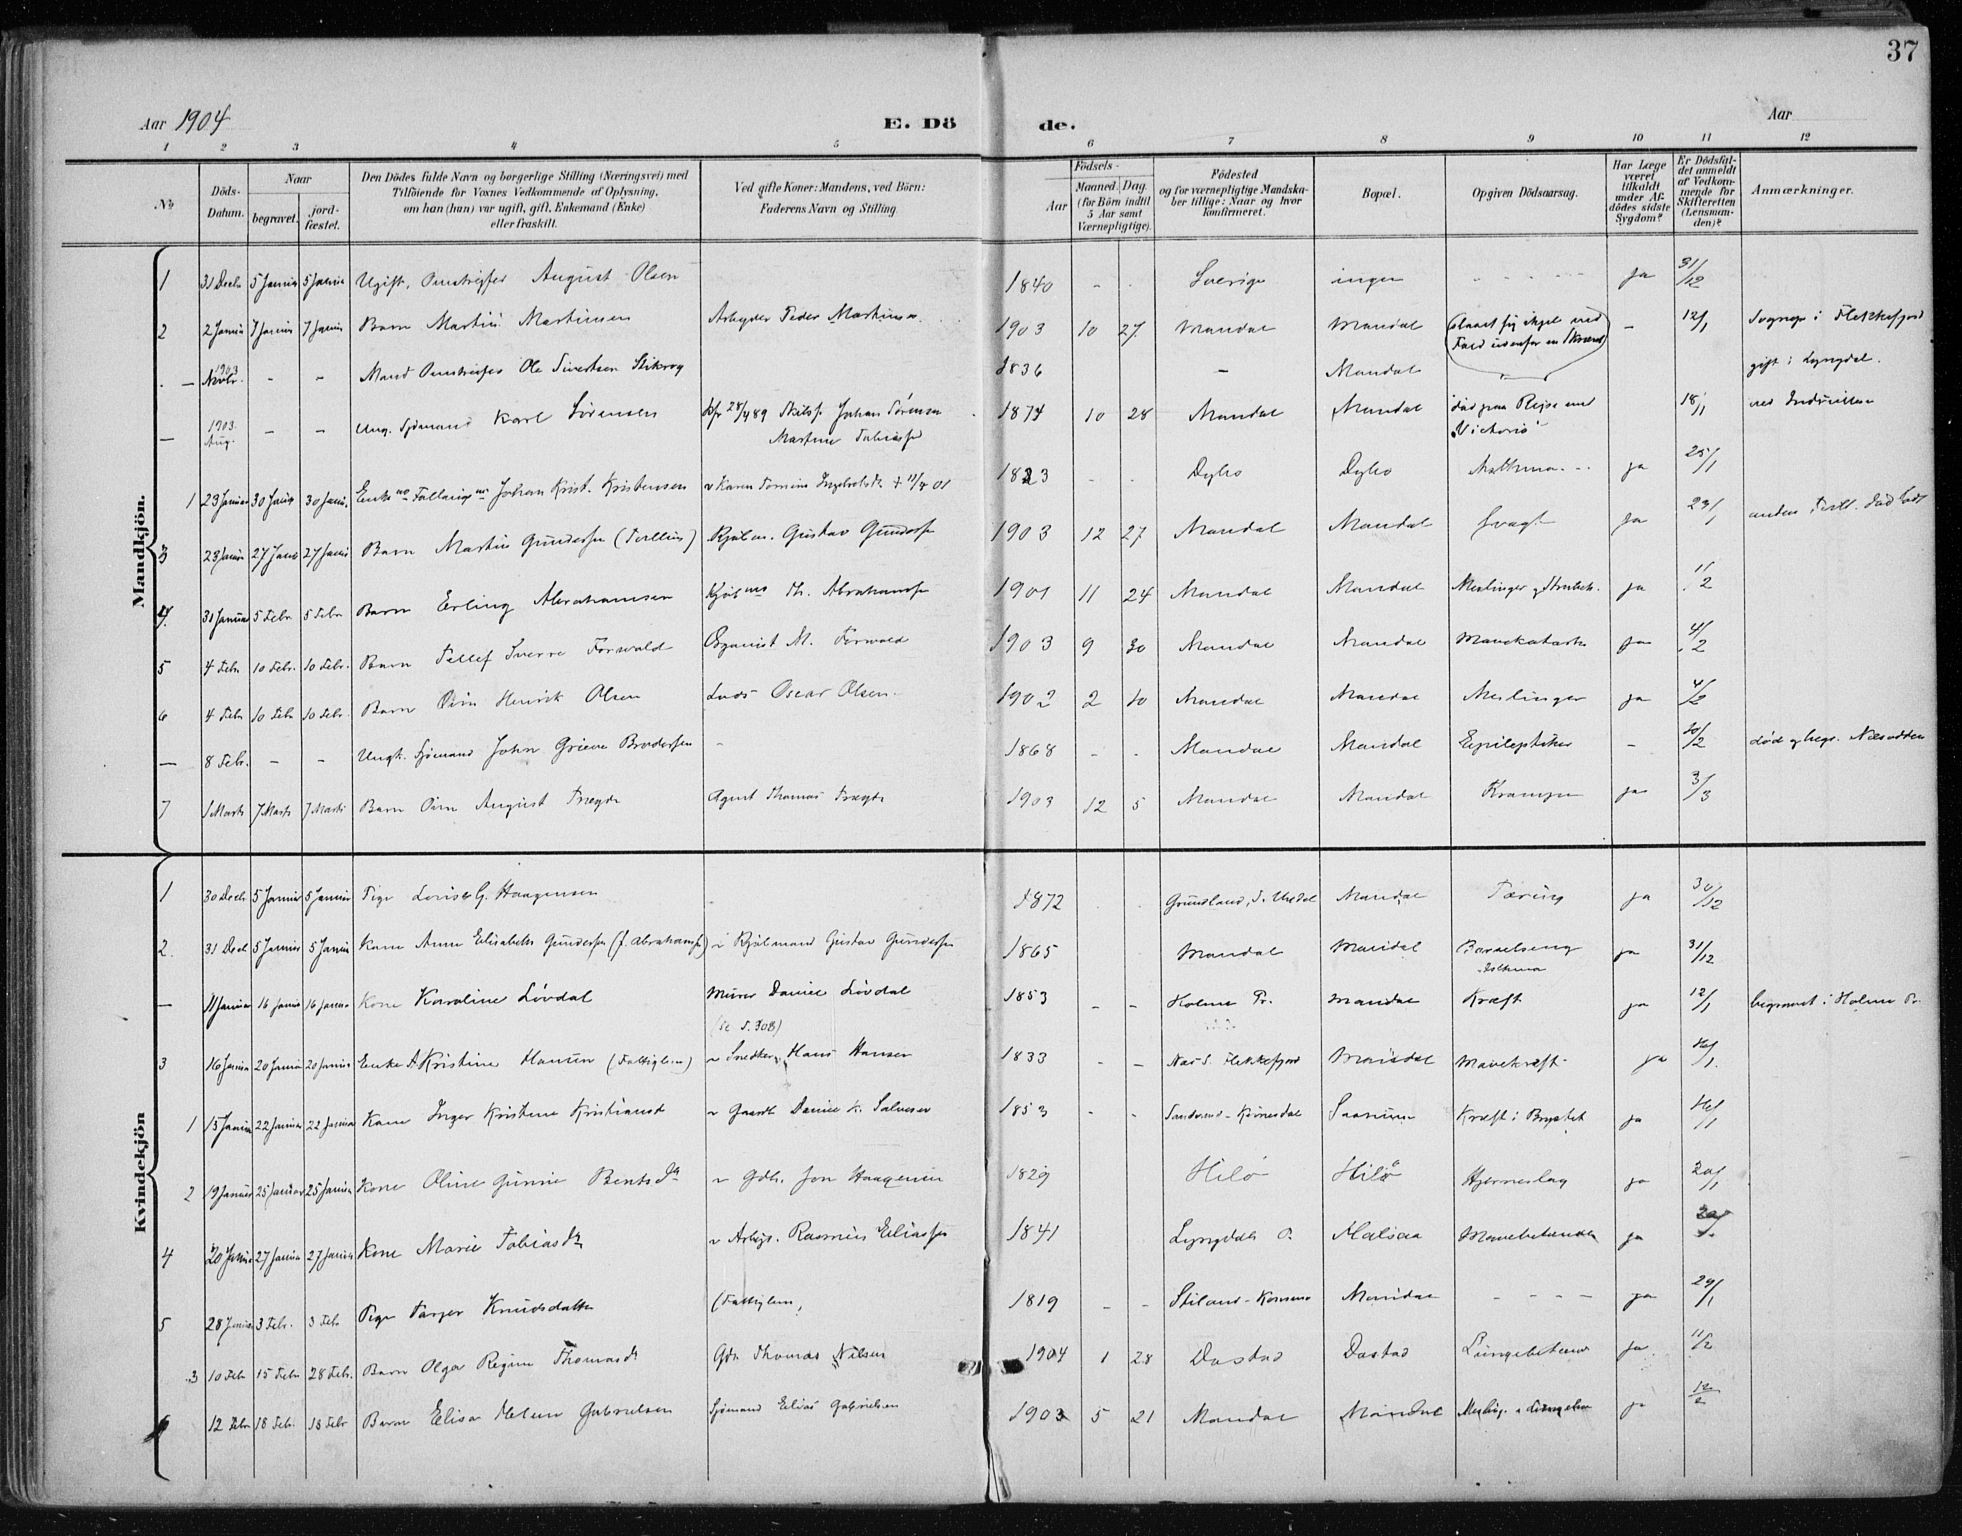 37
Aar 1904 E. Dö de. Aar
1 2 3 4 5 6 7 8 9 10 11 12
No
Döds-Datum.
Naar begravet. jord-fæstet.
Den Dödes fulde Navn og borgerlige Stilling (Næringsvei) med Tilföiende for Voxnes Vedkommende af Oplysning, om han (hun) var ugift, gift, Enkemand (Enke) eller fraskilt.
Ved gifte Koner: Mandens, ved Börn: Faderens Navn og Stilling
Födsels- Aar Maaned. Dag. (for Börn indtil 5 Aar samt Værnepligtige).
Födested og for værnepligtige Mandskaber tillige: Naar og hvor konfirmeret.
Bopæl.
Opgiven Dödsaarsag.
Har Læge været tilkaldt under Afdödes sidste Sygdom?
Er Dödsfaldet anmeldt af Vedkommende for Skifteretten (Lensmanden)?
Anmærkninger.
Mandkjön.
1 31 Decb 5 Januar 5 Januar Ugift, Omstreifer August Olsen 1840 - - Sverige ingen - - - - - ja 31/12
2 2 Januar 7 Januar 7 Januar Barn Martin Martinsen Arbeyder Peder Martinsen 1903 10 27 Mandal Mandal (slaaet sig ihjel ved Fald udenfor en Skrænt) - 12/1 Sogner i Flekkefjord
- 1903 Novbr. - - Mand Omstreifer Ole Sivertsen 1836 - Mandal gift i Lyngdal.
- 1903. Aug. - - Ung. Sjømand Karl Sörensen 28/4 89 Johan Sörensen Martine 1874 10 28 Mandal Mandal död paa Reise med "Victoria" 18/1 ved Indien
1 23 Januar 30 Januar 30 Janu. Enkem. Johan Krist. Kristensen Karen 1823 - - Dybo Dybo Asthma - - ja 25/1
3 23 Januar 27 Janu 27 Janu Barn Martin Gundersen (Tvilling) Kjøbm. Gustav Gundersen 1903 12 27 Mandal Mandal Svagt ja 23/1 anden Tvill.
4. 31 Januar 5 Febr 5 Febr Barn Erling Abrahamsen Kjøbmd Th. Abrahamsen 1901 11 24 Mandal Mandal Meslinger og ja 1/2
5 4 Febr 10 Febr. 10 Febr. Barn Tellef Sverre Forwald Organist M. Forwald 1903 9 30 Mandal Mandal Mavekatarh ja 4/2
6 4 Febr 10 Febr 10 Febr. Barn Henrik Olsen Lods Oscar Olsen. 1902 2 10 Mandal Mandal Meslinger ja 4/2
- 8 Febr. - - Ungk. Sjømand John Grieve Brodersen - 1868 - - Mandal Mandal Epileptiker - 20/2 død og begr. Næsodden
7 1 Marts 7 Marts 7 Marts Barn August Trægde Agent Thomas Trægde 1903 12 5 Mandal Mandal Krampe ja 3/3
Kvindekjön
1 30 Decb 5 Januar 5 Januar Pige Louise G. Haagensen 1872 - - Grundland, S. Undal Mandal Tæring ja 30/12
2. 31 Decb 5 Januar 5 Januar Kone Anne Elisabeth Gundersen (f. Abrahamsen) v Kjøbmand Gustav Gundersen 1865 Mandal Mandal Barselseng Asthma ja 31/12
- 11 Januar 16 Januar 16 Januar Kone Karoline Løvdal Murer Daniel Løvdal (se S. 308) 1853 - - Holme Pr. Mandal Kræft ja 12/1 begravet i Holme Pr.
3 16 Januar 20 Januar 20 Januar Enke A Kristine Hansen (Fattiglem) v Snedker Hans Hansen 1833 - - Næs S. Flekkefjord Mandal Mavekræft ja 16/1.
1 15 Januar 22 Januar 22 Januar Kone Inger Kristine Kristiansd v Gaardbr Daniel K. Salvesen 1853 - - Kvinesdal Sanum Kræft i Brystet ja 16/1
2 19 Januar 25 Januar 25 Januar Kone Oline Gunnie Bentsdtr v Gdbr. Jon Haagensen 1829 Hilø Hilø Hjerneslag ja 20/1
4 20 Januar 27 Januar 27 Januar Kone Marie Tobiasdtr v Arbeyd. Rasmus Eliassen 1841 Lyngdal P. Malsaa Mavebetændelse ja 20/1
5 28 Januar 3 Febr. 3 Febr Pige Knudsdatter (Fattiglem) 1819 - - Mandal - - - - ja 29/1
3 10 Febr 15 Febr 28 Febr. Barn Olga Regine Thomasdtr Gdbr Thomas Nilsen 1904 1 28 Dastad Dastad Lungebetænd ja. 11/2
6 12 Febr 18 Febr. 18 Febr Barn Elisa Helene Gabrielsen Sjømand Elias Gabrielsen 1903 5 21 Mandal Mandal ja 12/2